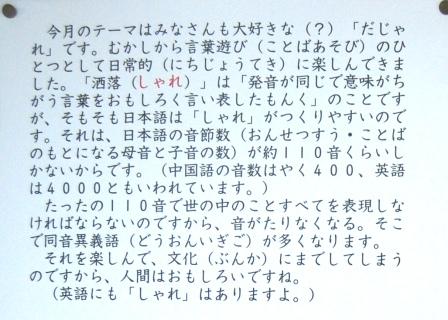 今月のテーマはみなさんも大好きな（？）「だじゃ
れ」です。むかしから言葉遊び（ことばあそび）のひ
とつとして日常的（にちじょうてき）に楽しんできま
した。「洒落（しゃれ）」は「発音が同じで意味がち
がう言葉をおもしろく言い表したもんく」のことです
が、そもそも日本語は「しゃれ」がつくりやすいので
す。それは、日本語の音節数（おんせつすう・ことば
のもとになる母音と子音の数）が約１１０音くらいし
かないからです。（中国語の音数はやく４００、英語
は４０００ともいわれています。）
たったの１１０音で世の中のことすべてを表現しな
ければならないのですから、音がたりなくなる。そこ
で同音異義語（どうおんいぎご）が多くなります。
それを楽しんで、文化（ぶんか）にまでしてしまう
のですから、人間はおもしろいですね。
（英語にも「しゃれ」はありますよ。）